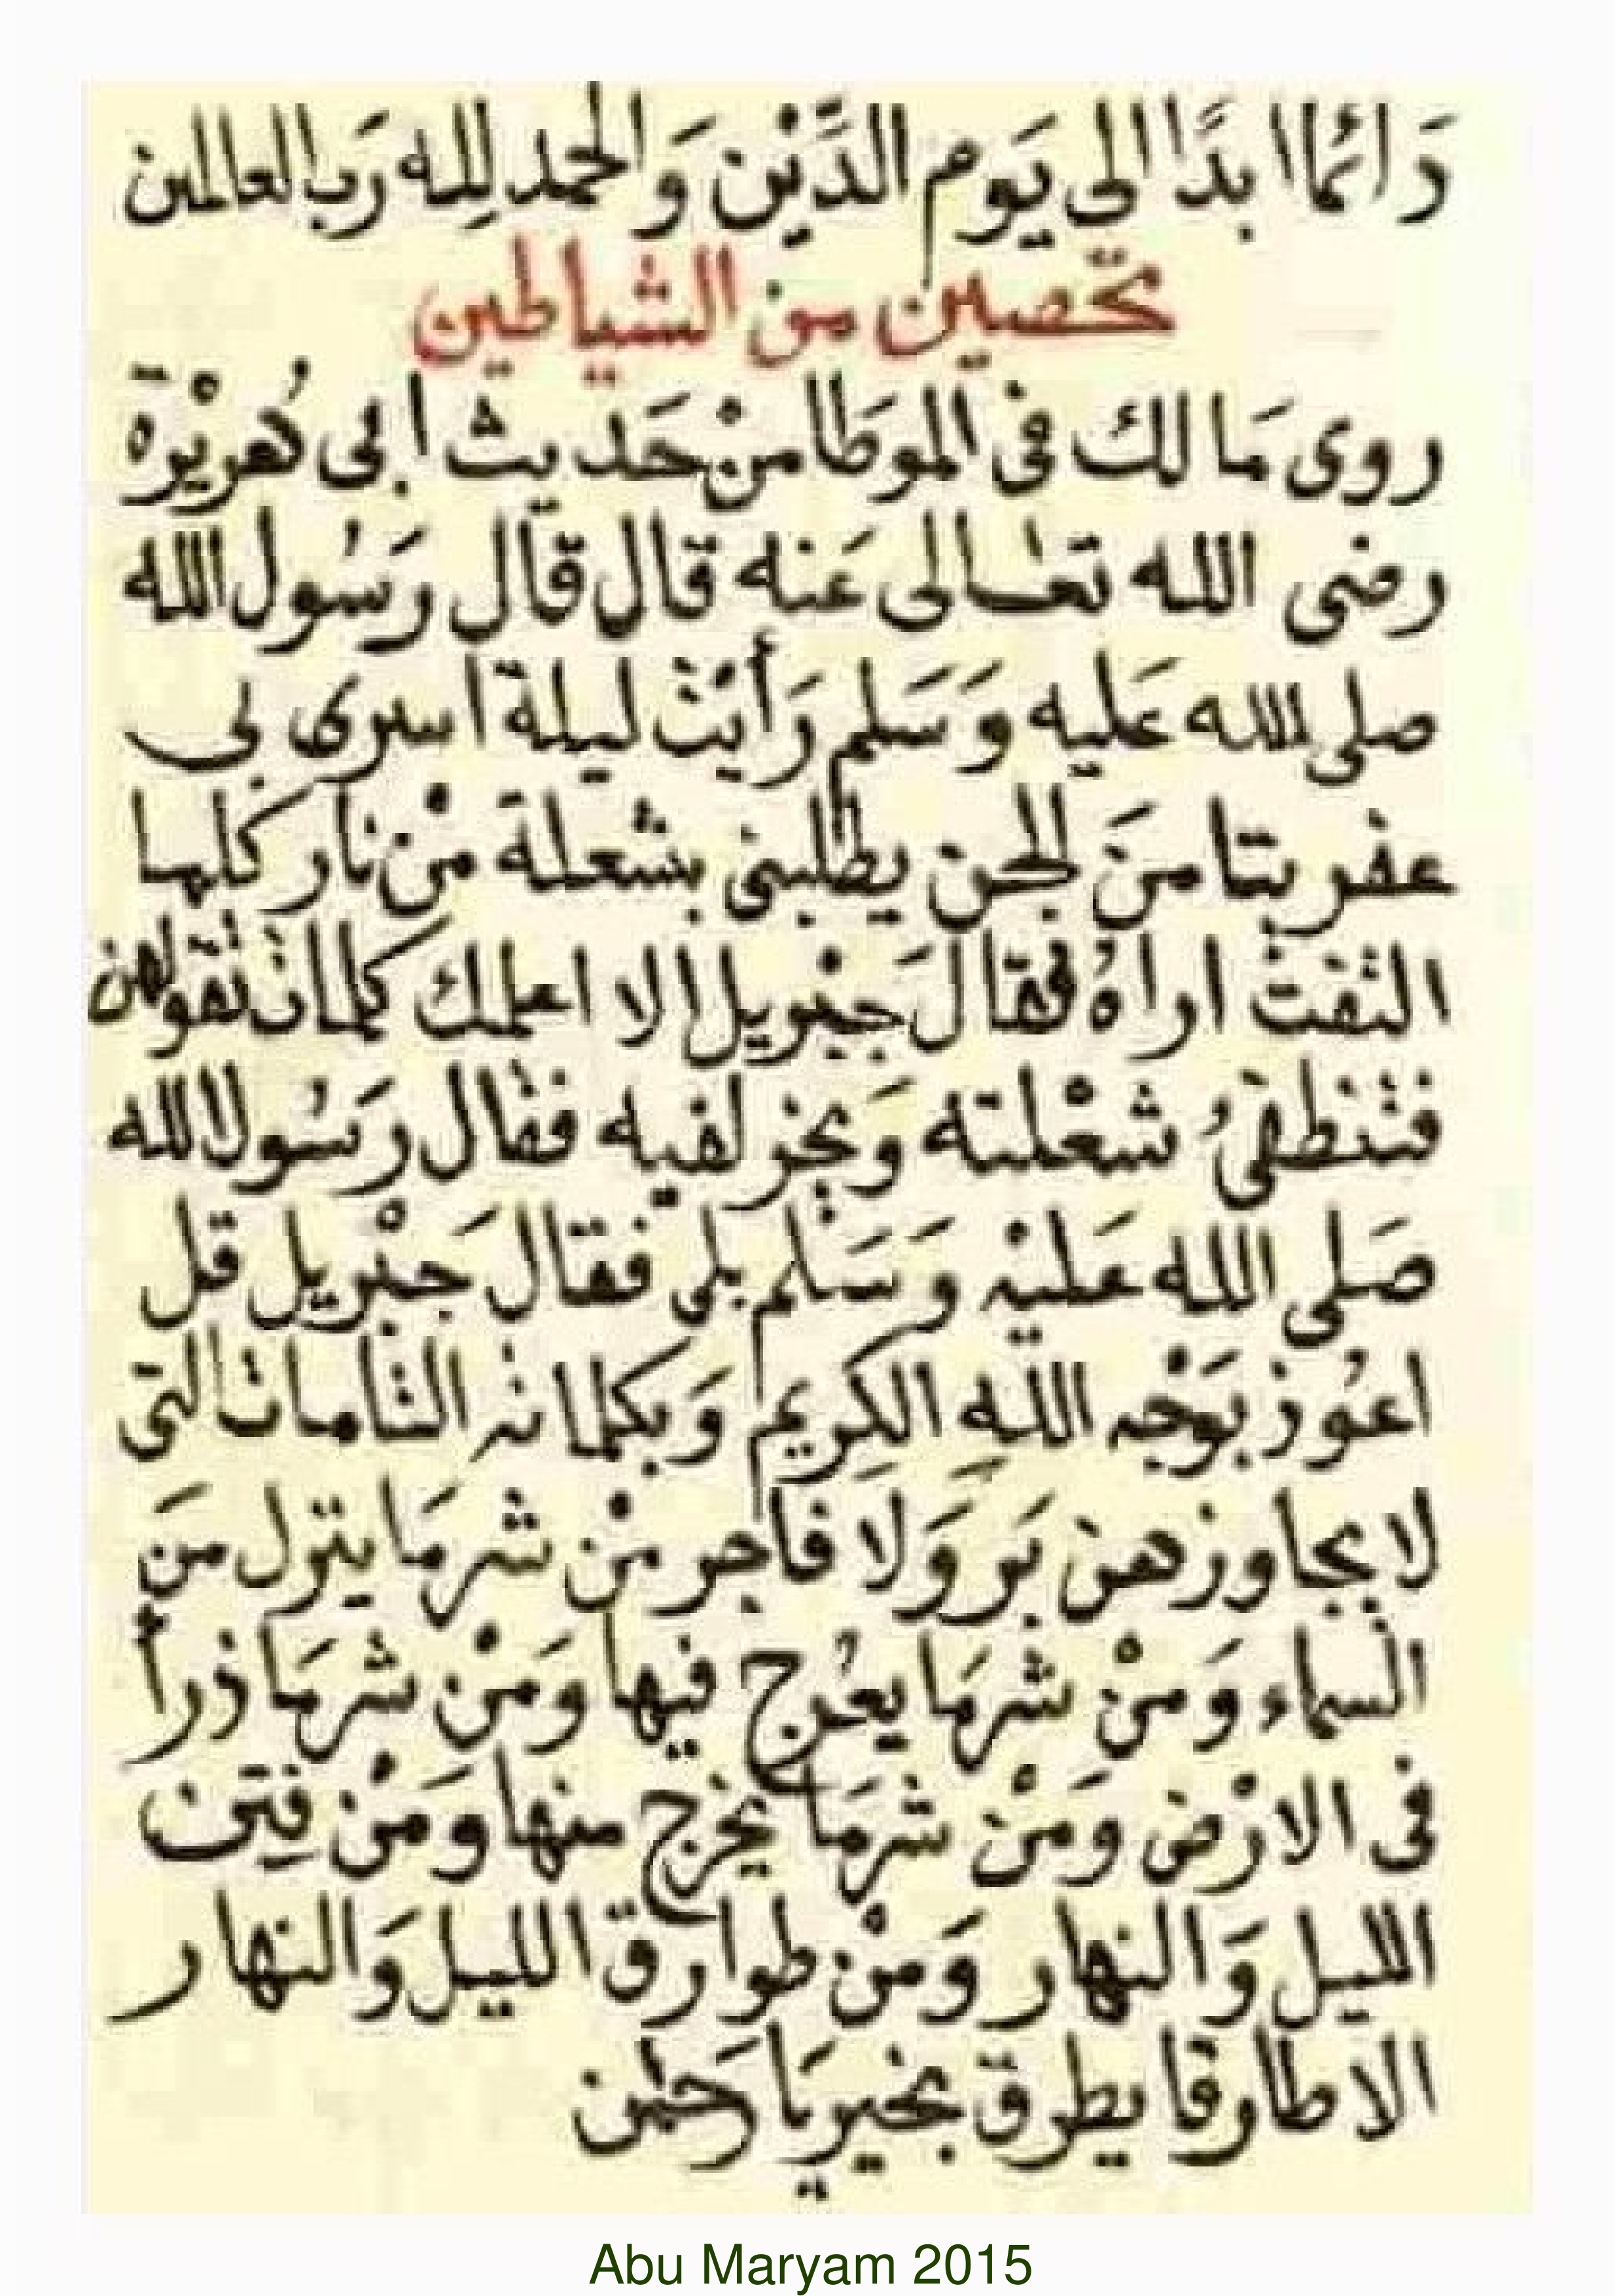 دَائمًا ابدًا الى يَوم الدِّيْن وَالحمد لِله رَب العالمين
تحصين من الشياطين
روى مَالك فى الموطا منْ حَديث ابى هُريْرة
رضى الله تعالى عَنه قال قال رَسُول الله
صلى الله عَليه وَسَلم رَأيْت ليلة اسرى بى
عفريتا منَ الجن يطلبنى بشعلة منْ نار كلما
التفتْ اراهُ فقالَ جبْريل الا اعلمك كلمات تقولهن
فتنطفىُ شعْلته وَيخر لفيه فقال رَسُول الله
صَلى الله عَليْه وَسَلم بلى فقال جَبْريل قل
اعُوذ بوَجْه الله الكِريم وَبكلماته التامات التى
لا يجاوزهن بَر وَلا فاجر منْ شر مَا ينزل منَ
السماء وَمنْ شر مَا يعْرج فيها وَمنْ شر مَا ذرأ
فى الارْض ومنْ شر مَا يخرج منها وَمنْ فِتن
الليل وَالنهار وَمنْ طوارق الليل وَالنهار
الا طارقا يطرق بخير يَا رَحمن
Abu Maryam 2015